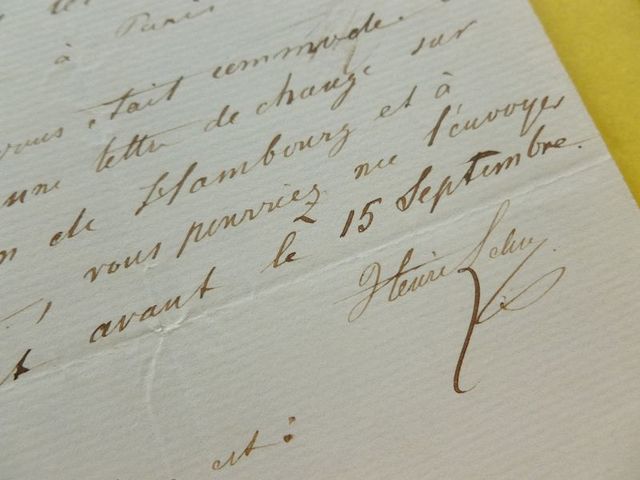 à Paris
vous était commode
une lettre de change sur
de Hambourg et à
vous pourriez me l'envoyer
avant le 15 Septembre.
Henri
est: